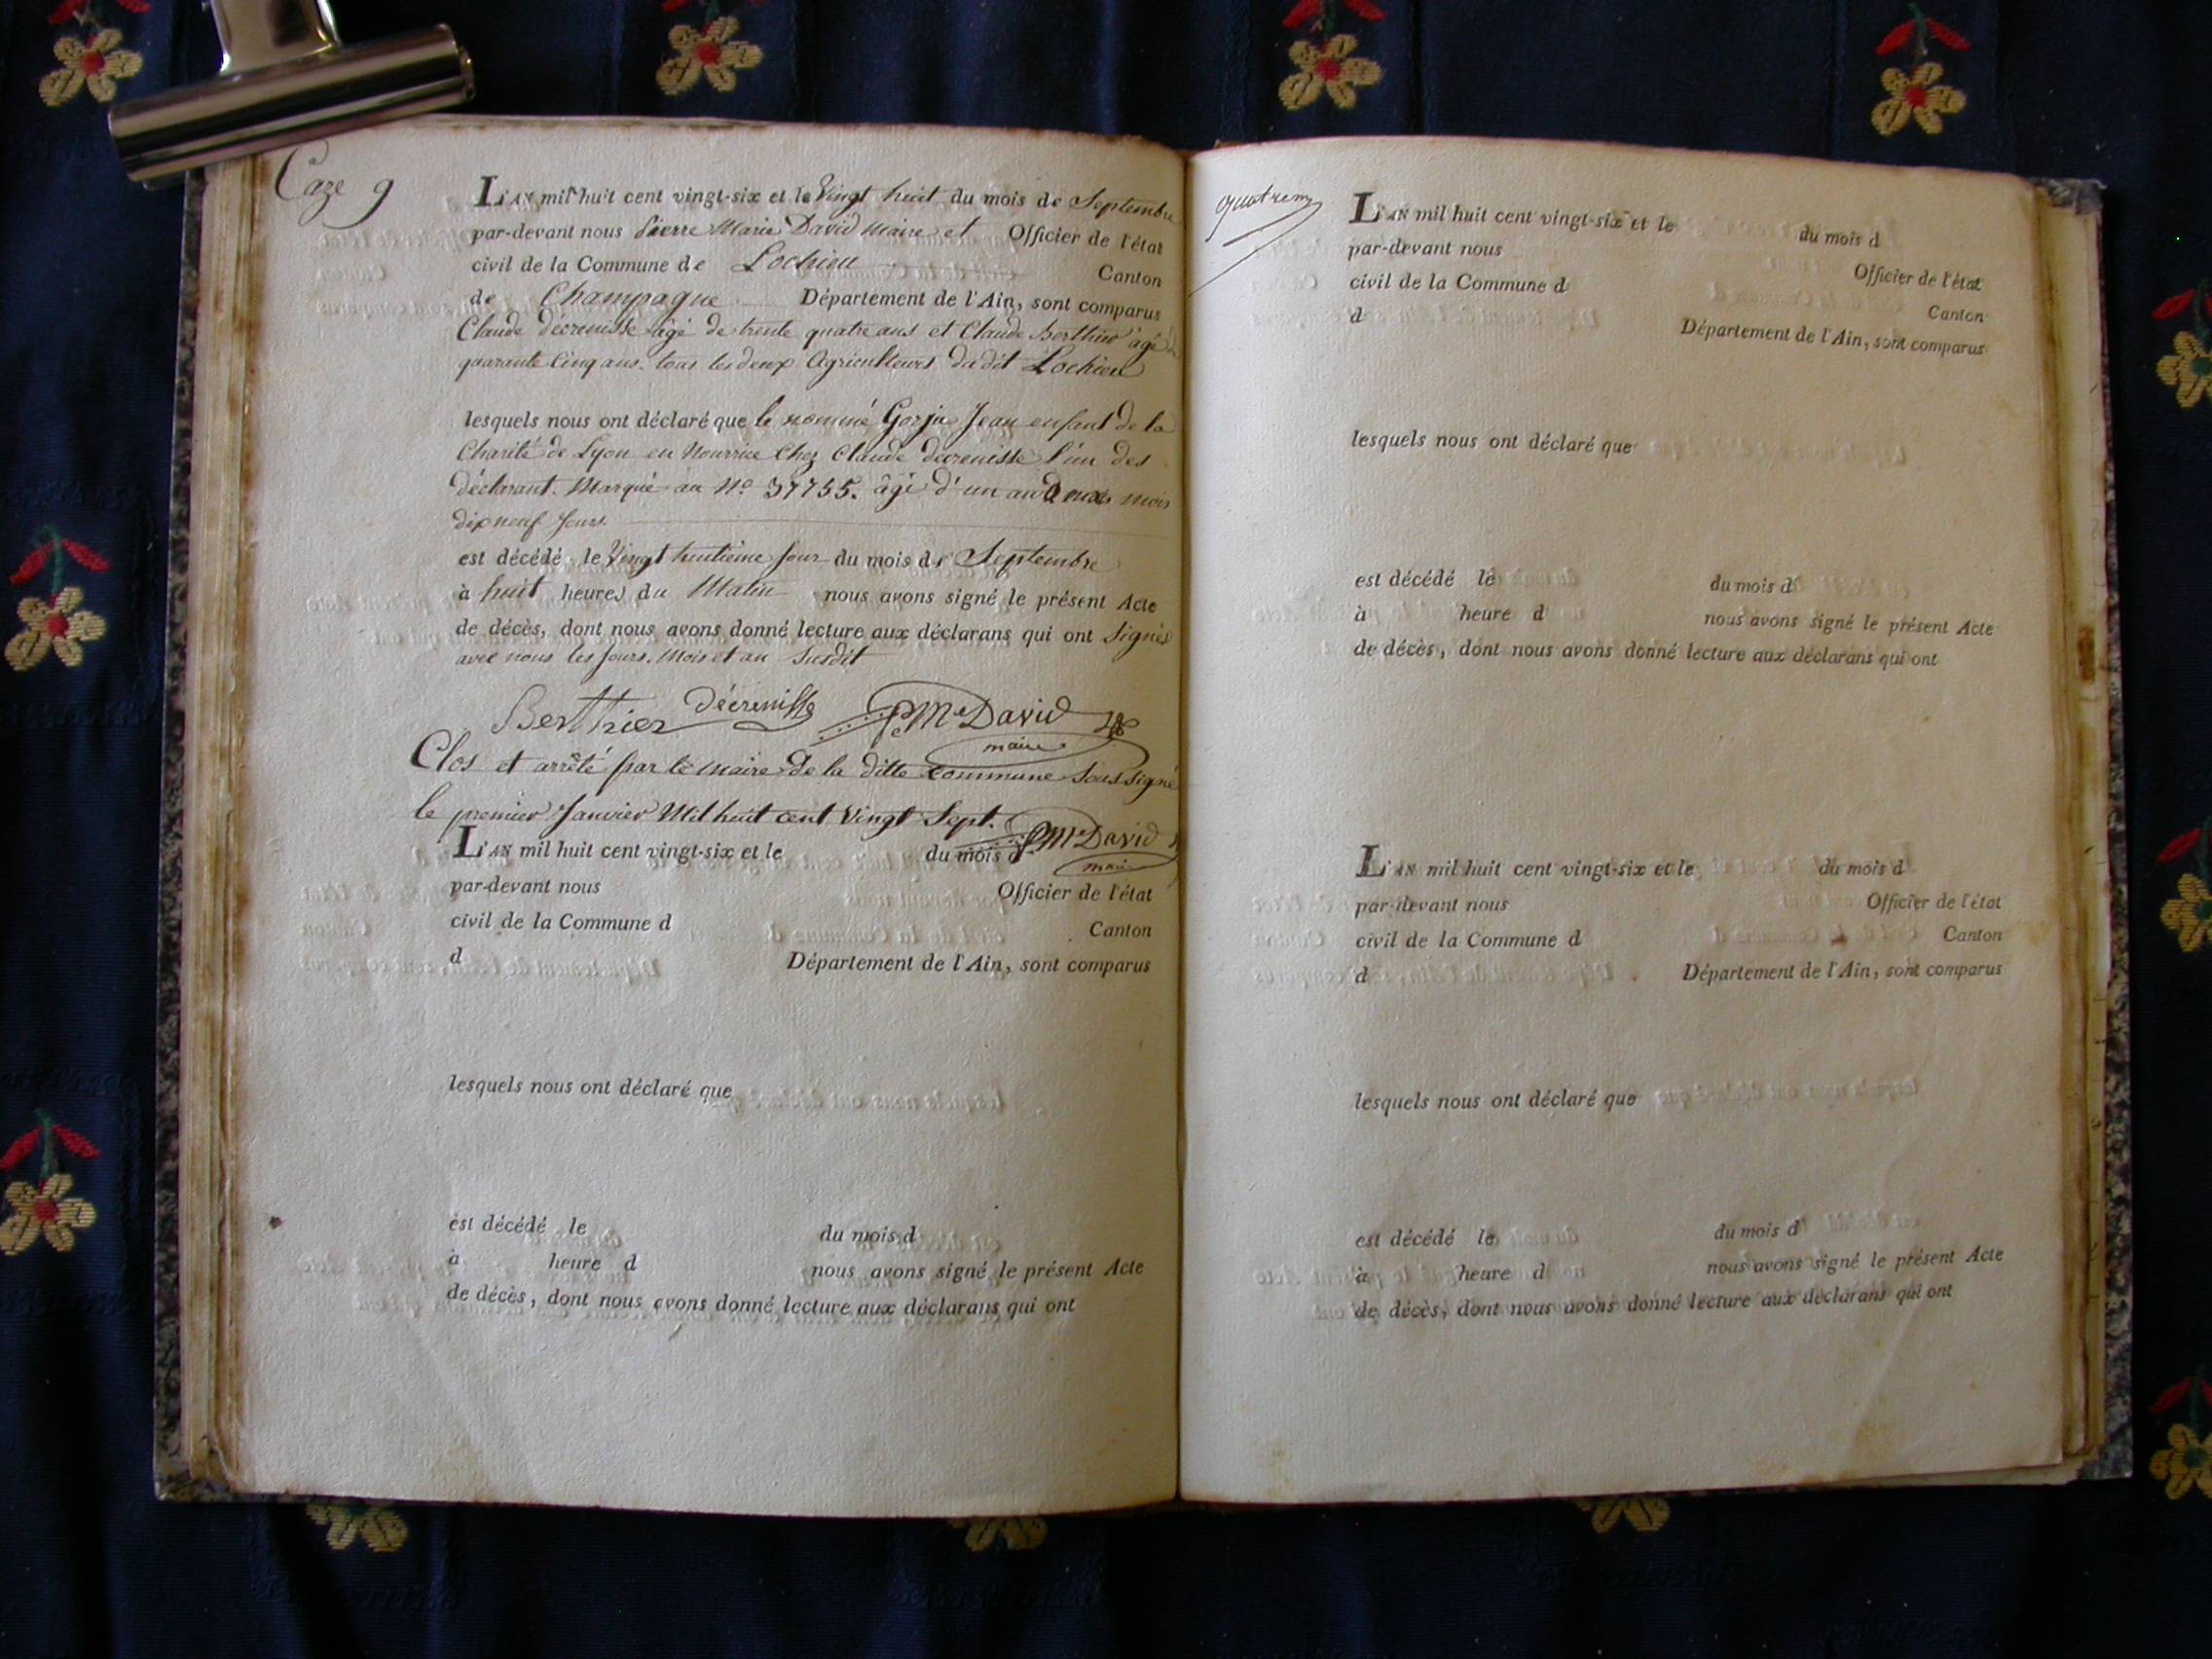 Caze 9
L'AN mil huit cent vingt-six et le Vingt huit du mois de Septembre
par-devant nous Pierre Marie David Maire et Officier de l'état
civil de la Commune de Lochieu Canton
de Champagne Département de l'Ain, sont comparus
Claude décrenisse âgé de trente quatre ans et Claude Berthier âgé de
quarante Cinq ans. tous les deux Agriculteurs du dit Lochieu
lesquels nous ont déclaré que le nommé Gorju Jean enfant de la
Charité de Lyon en Nourrice Chez Claude décrenisse l'un des
déclarant. Marqué au N° 37755. âgé d'un an deux mois
dix neuf Jours.
est décédé le Vingt huitième Jour du mois de Septembre
à huit heures du Matin nous avons signé le présent Acte
de décès, dont nous avons donné lecture aux déclarans qui ont Signés
avec nous les Jours, Mois et an Susdit
Berthier décrenisse PMe David
maire
Clos et arrêté par le Maire de la ditte Commune Soussigné
le premier Janvier Mil huit cent Vingt Sept. PMe David
maire
L'AN mil huit cent vingt-six et le du mois d
par-devant nous Officier de l'état
civil de la Commune d Canton
d Département de l'Ain, sont comparus
lesquels nous ont déclaré que
est décédé le du mois d
à heure d nous avons signé le présent Acte
de décès, dont nous avons donné lecture aux déclarans qui ont
L'AN mil huit cent vingt-six et le du mois d
par-devant nous Officier de l'état
civil de la Commune d Canton
d Département de l'Ain, sont comparus
lesquels nous ont déclaré que
est décédé le du mois d
à heure d nous avons signé le présent Acte
de décès, dont nous avons donné lecture aux déclarans qui ont
L'AN mil huit cent vingt-six et le du mois d
par-devant nous Officier de l'état
civil de la Commune d Canton
d Département de l'Ain, sont comparus
lesquels nous ont déclaré que
est décédé le du mois d
à heure d nous avons signé le présent Acte
de décès, dont nous avons donné lecture aux déclarans qui ont